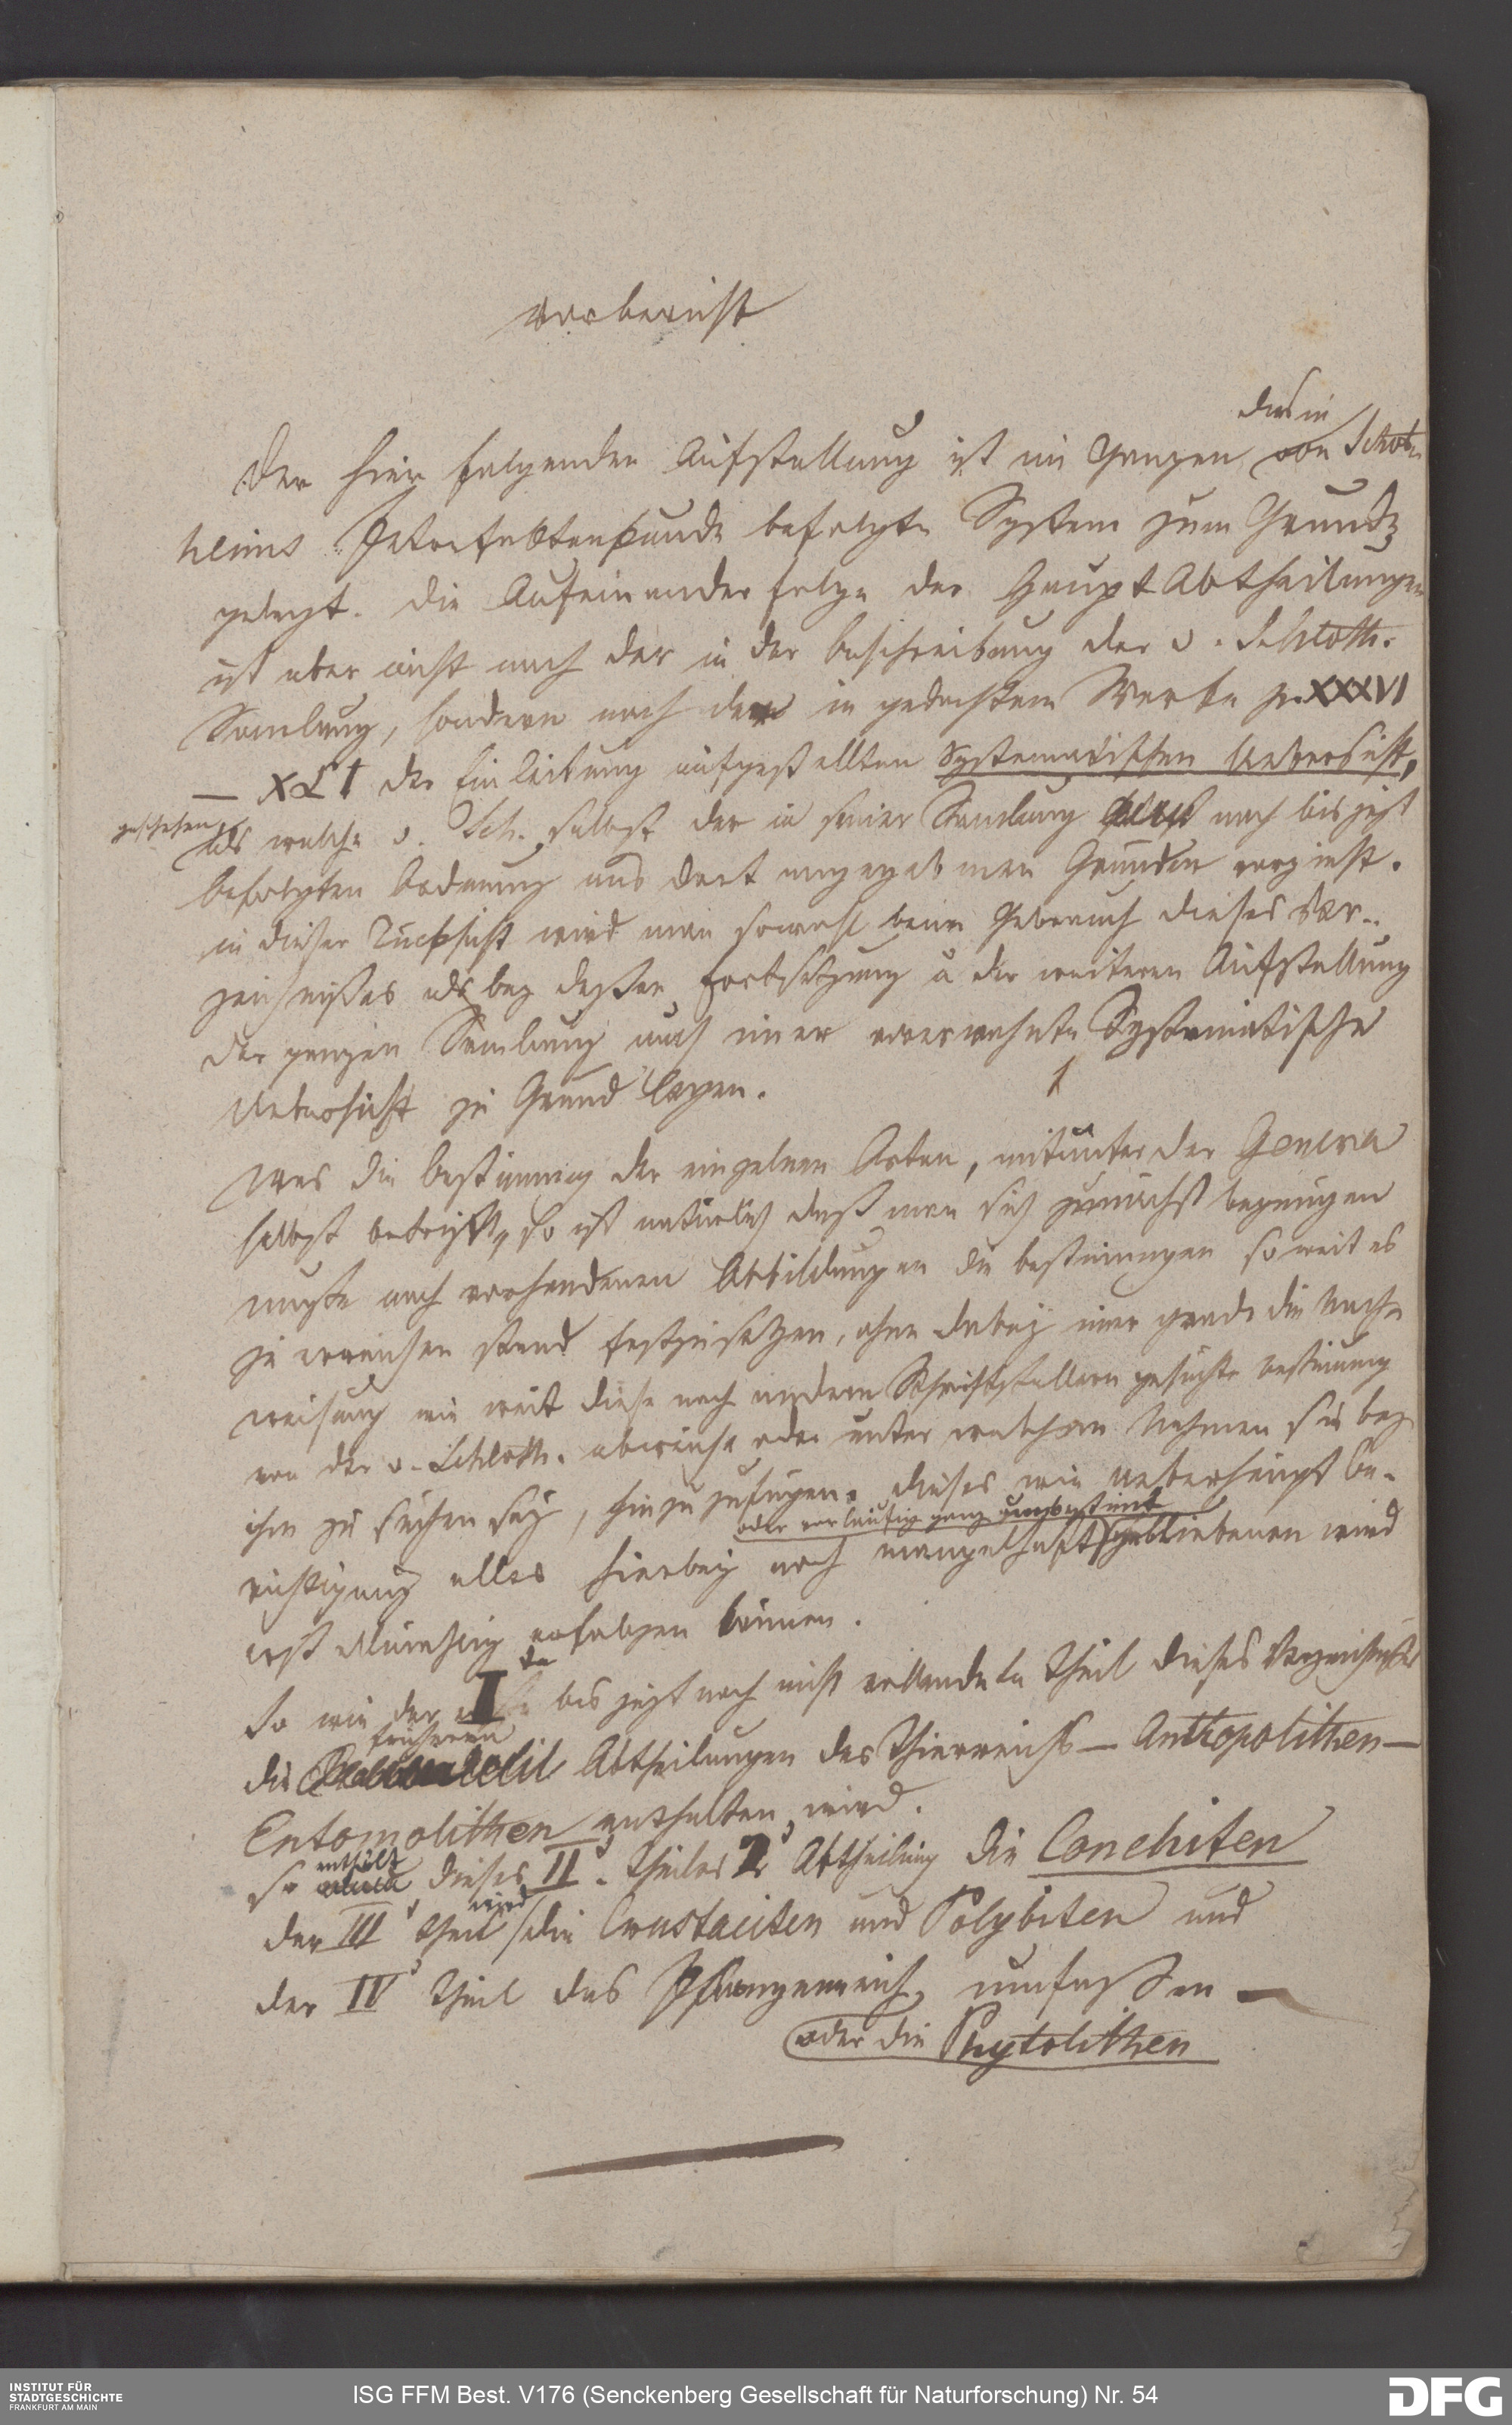 Vorbericht
das in
Der hier folgenden Aufstellung ist im Ganzen von Schlot
heims Petrefaktenkunde befolgte System zum Grunde
gelegt. Die Aufeinanderfolge der Haupt Abtheilungen
ist aber nicht nach der in der Beschreibung der v. Schloth.
Samlung, sondern nach der in gedachtem Werke p. XXXVI
— XLI der Einleitung aufgestellten Systematischen Uebersicht,
geschehen
als welche v. Sch. selbst der in seiner Samlung noch bis jezt
befolgten Ordnung aus dort angegebenen Gründen vorzieht.
in dieser Rücksicht wird man sowohl beim Gebrauch dieses Ver-
zeichnißes als bey deßen Fortsetzung u der weiteren Aufstellung
der ganzen Samlung auch immer vorerwehnte Systematische
Uebersicht zu Grund legen.
Was die Bestimmung der einzelnen Arten, mitunter der Genera
selbst betrifft, so ist natürlich daß man sich zunächst begnügen
mußte nach vorhandenen Abbildungen die Bestimmungen so weit es
zu erreichen stand festzusetzen, ohne dabey immer grade die Nach-
weisung wie weit diese nach andern Schriftstellern gesuchte Bestimmung
von der v. Schloth. abweiche oder unter welchem Nahmen sie bey
ihm zu suchen sey, hinzuzufügen. dieses wie ueberhaupt Be-
oder vorläufig ganz unbestimt
richtigung alles hierbey noch mangelhaft gebliebenen wird
erst allmählig erfolgen können.
So wie der I te bis jezt noch nicht vollendete Theil dieses Verzeichnißes
früheren
die Abtheilungen des Thierreichs — Antropolithen —
Entomolithen enthalten wird.
enthält
so dieses II. Theiles 2 Abtheilung die Conchiten
wird
der III Theil die Crustaciten und Polybiten und
der IV Theil das Pflanzenreich, umfaßen —
oder die Phytolithen
INSTITUT FÜR
STADTGESCHICHTE
FRANKFURT AM MAIN
ISG FFM Best. V176 (Senckenberg Gesellschaft für Naturforschung) Nr. 54
DFG